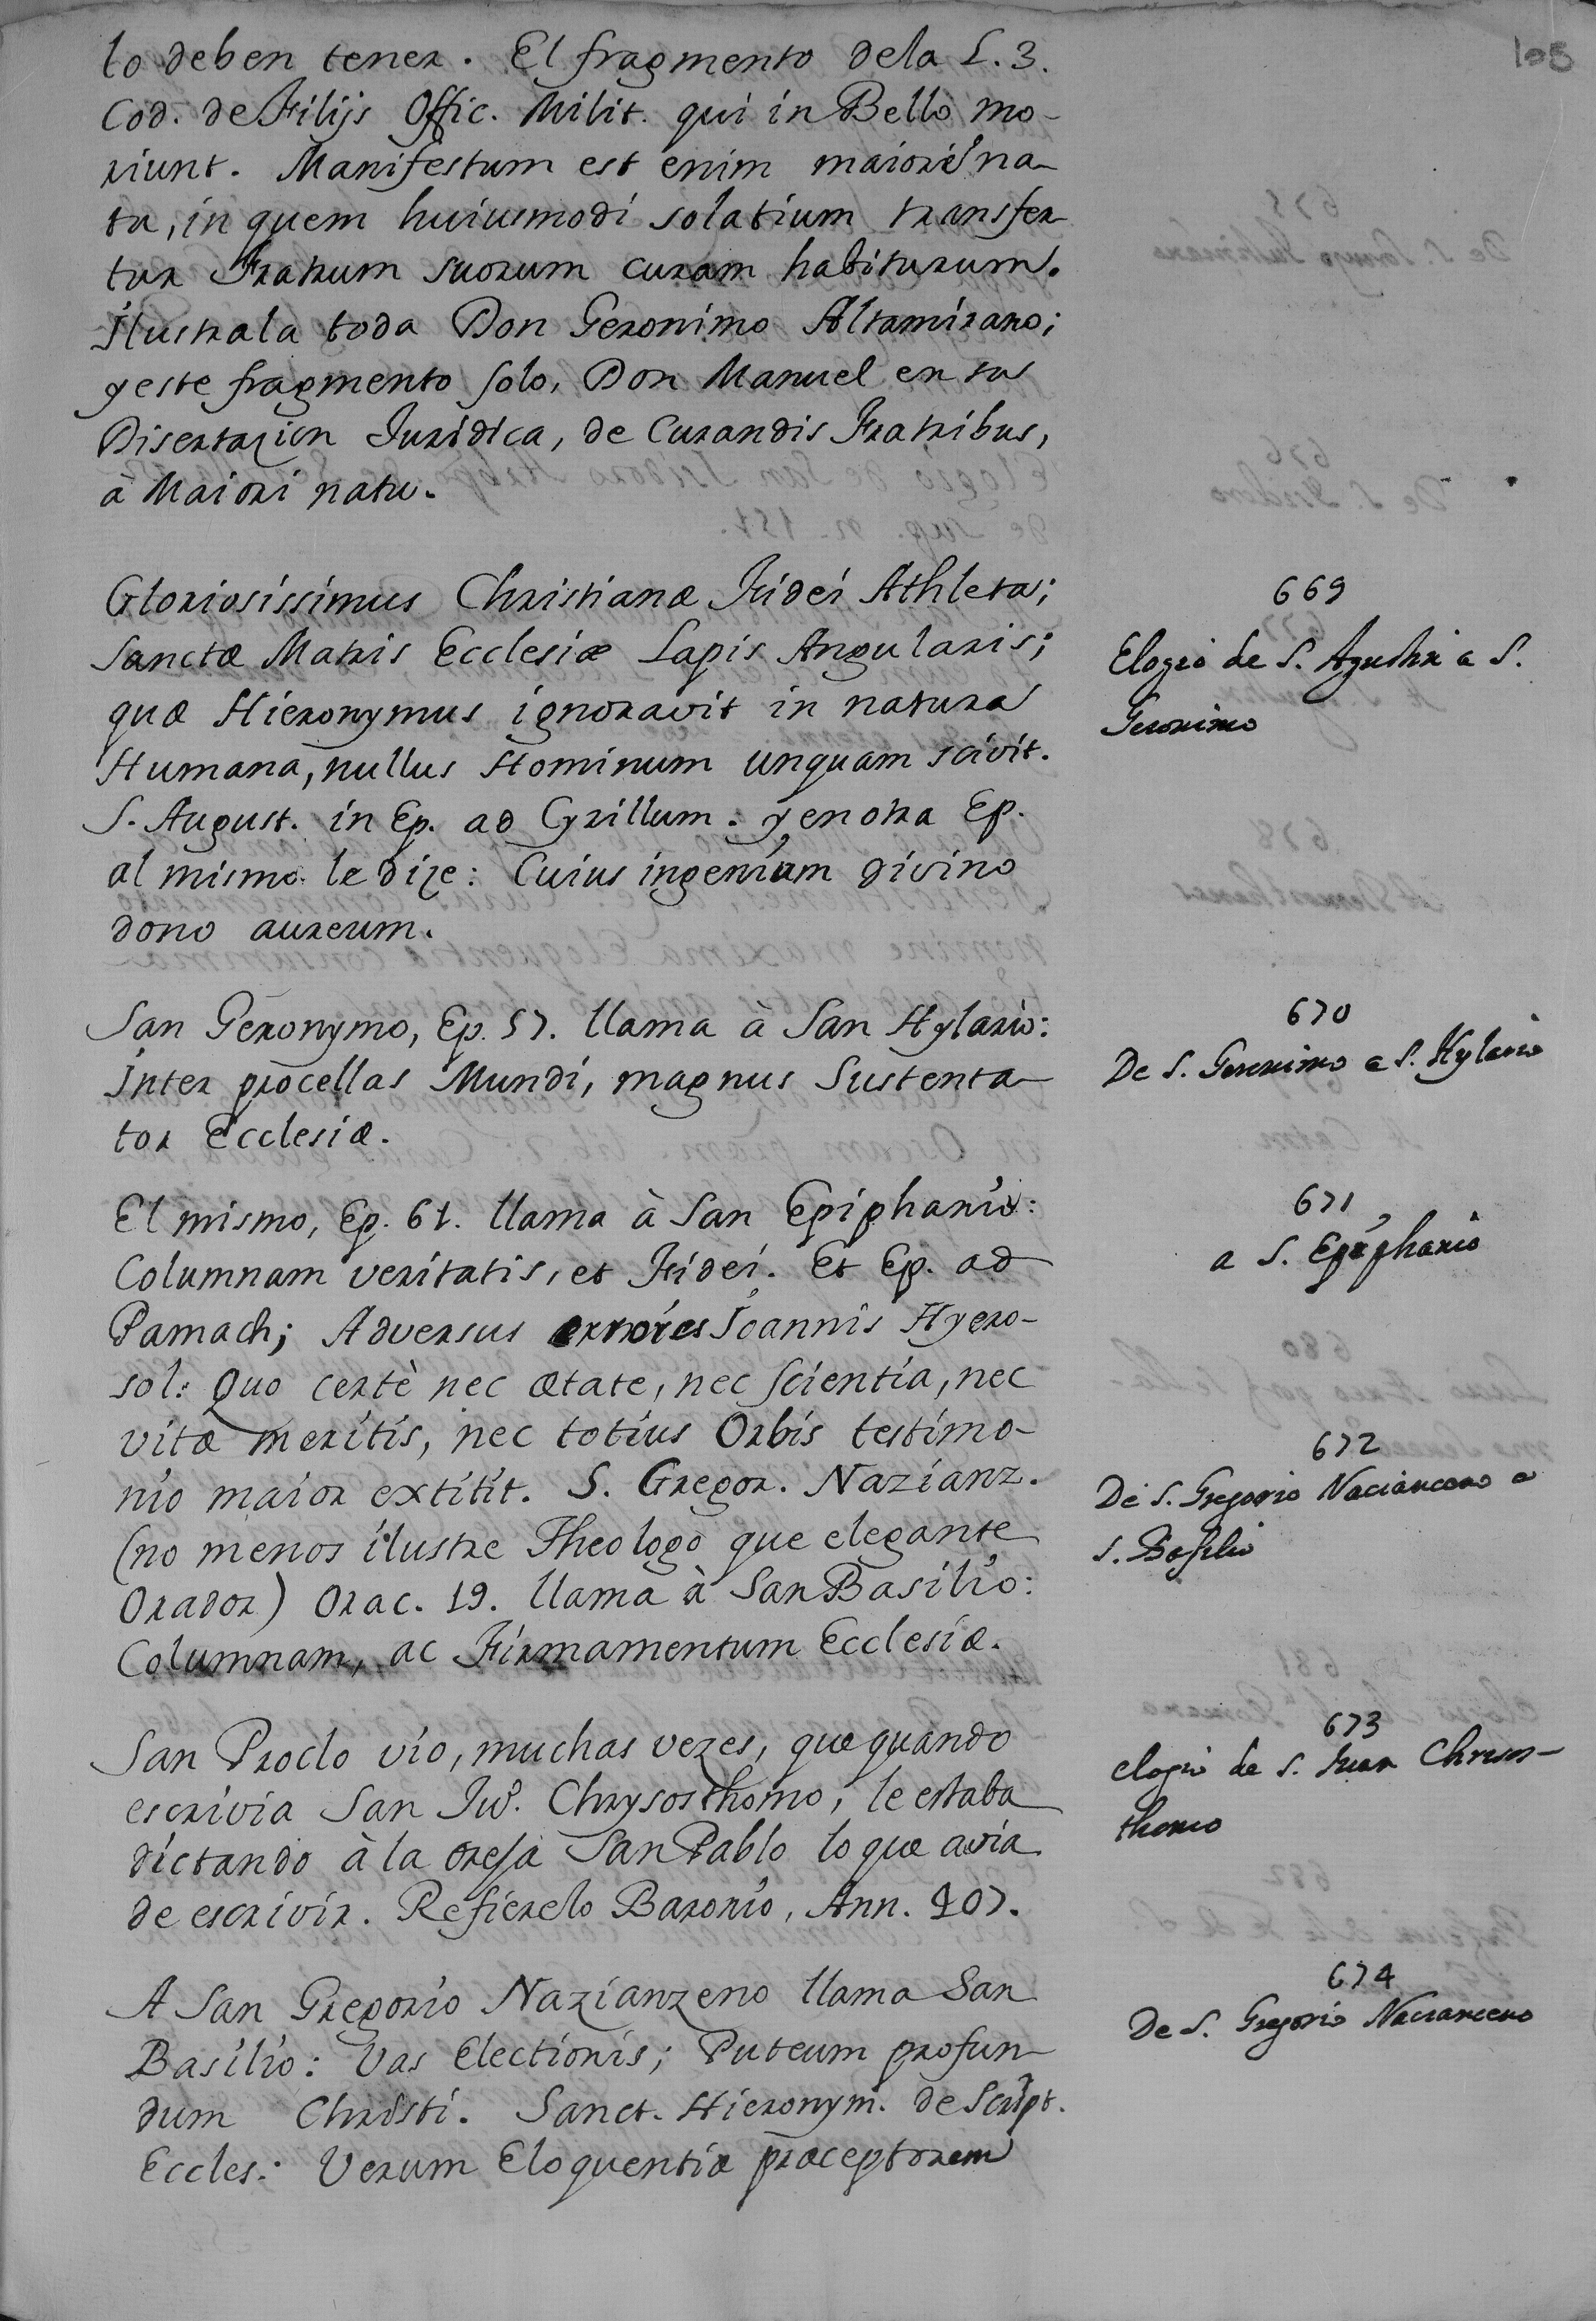 105
lo deben tener. El fragmento dela L. 3.
Cod. de Filijs Offic. Milit. qui in Bello mo-
riunt. Manifestum est enim maiore na-
tu, in quem huiusmodi solatium transfer-
tur Fratrum suorum curam habiturum.
Ilustrala toda Don Geronimo Altamirano;
y este fragmento solo, Don Manuel en su
Disertazion Juridica, de Curandis Fratribus,
à Maiori natu.
669
Elogio de S. Agustin a S.
Geronimo
Gloriosissimus Christianæ Fidei Athleta;
Sanctæ Matris Ecclesiæ Lapis Angularis;
quæ Hieronymus ignoravit in natura
Humana, nullus Hominum unquam scivit.
S. August. in Ep. ad Cyrillum. y en otra Ep.
al mismo le dize: Cuius ingenium divino
dono aureum.
670
De S. Geronimo a S. Hylario
San Geronymo, Ep. 57. llama à San Hylario:
Inter procellas Mundi, magnus Sustenta-
tor Ecclesiæ.
671
a S. Epiphanio
El mismo, Ep. 61. llama à San Epiphanio:
Columnam veritatis, et Fidei. Et Ep. ad
Pamach; Adversus errores Ioannis Hyero-
sol: Quo certè nec ætate, nec scientia, nec
vitæ meritis, nec totius Orbis testimo-
nio maior extitit. S. Gregor. Nazianz.
(no menos ilustre Theologo que elegante
Orador) Orac. 19. llama à San Basilio:
Columnam, ac Firmamentum Ecclesiæ.
672
De S. Gregorio Nacianceno a
S. Basilio
673
elogio de S. Juan Chrisos-
thomo
San Proclo vio, muchas vezes, que quando
escrivia San Juº. Chrysosthomo, le estaba
dictando à la oreja San Pablo lo que avia
de escrivir. Refierelo Baronio, Ann. 407.
674
De S. Gregorio Nacianceno
A San Gregorio Nazianzeno llama San
Basilio: Vas Electionis; Puteum profun-
dum Christi. Sanct. Hieronym. de Script.
Eccles: Verum Eloquentiæ præceptorem